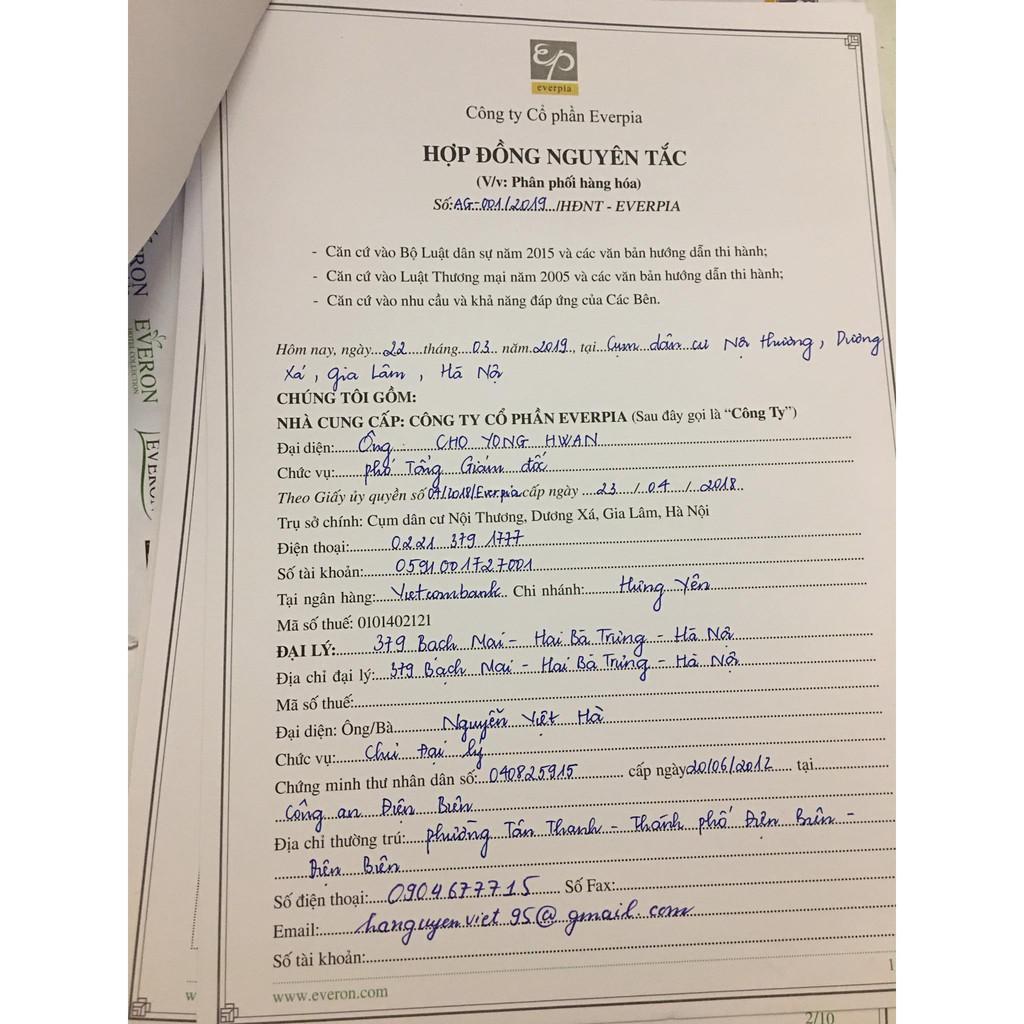 everpia
Công ty Cổ phần Everpia
HỢP ĐỒNG NGUYÊN TẮC
(V/v: Phân phối hàng hóa)
Số:AG-001/2019../HĐNT - EVERPIA
- Căn cứ vào Bộ Luật dân sự năm 2015 và các văn bản hướng dẫn thi hành;
- Căn cứ vào Luật Thương mại năm 2005 và các văn bản hướng dẫn thi hành;
- Căn cứ vào nhu cầu và khả năng đáp ứng của Các Bên.
Hôm nay, ngày...22....tháng...03.. năm.2019., tại...Cụm dân cư Nội thương, Dương
Xá, Gia Lâm, Hà Nội
CHÚNG TÔI GỒM:
NHÀ CUNG CẤP: CÔNG TY CỔ PHẦN EVERPIA (Sau đây gọi là “Công Ty”)
Đại diện:....Ông CHO YONG HWAN
Chức vụ:....phó Tổng Giám đốc
Theo Giấy ủy quyền số 04/2018/Everpia cấp ngày ....23..../04..../2018..
Trụ sở chính: Cụm dân cư Nội Thương, Dương Xá, Gia Lâm, Hà Nội
Điện thoại:....0221 379 1777
Số tài khoản:....0591001727001
Tại ngân hàng:...Vietcombank.. Chi nhánh:....Hưng Yên
Mã số thuế: 0101402121
ĐẠI LÝ:....379 Bạch Mai - Hai Bà Trưng - Hà Nội
Địa chỉ đại lý:...379 Bạch Mai - Hai Bà Trưng - Hà Nội
Mã số thuế:....
Đại diện: Ông/Bà....Nguyễn Việt Hà
Chức vụ:....Chủ Đại lý
Chứng minh thư nhân dân số:..040825915.... cấp ngày 20/06/2012.... tại....
Công an Điện Biên
Địa chỉ thường trú:...phường Tân Thanh - Thành phố Điện Biên -
Điện Biên
Số điện thoại:...0904677715.... Số Fax:....
Email:....hanguyenviet95@gmail.com
Số tài khoản:....
www.everon.com
1
2/10
w
EVERON
HOTEL COLLECTION